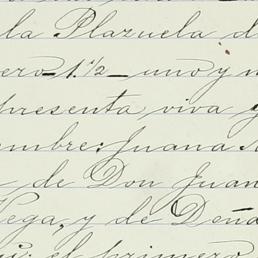 la Plazuela d
ero-1½-uno y m
presenta viva y
ombre: Juana
de Don Juan
Vega, y de Doña
el primero